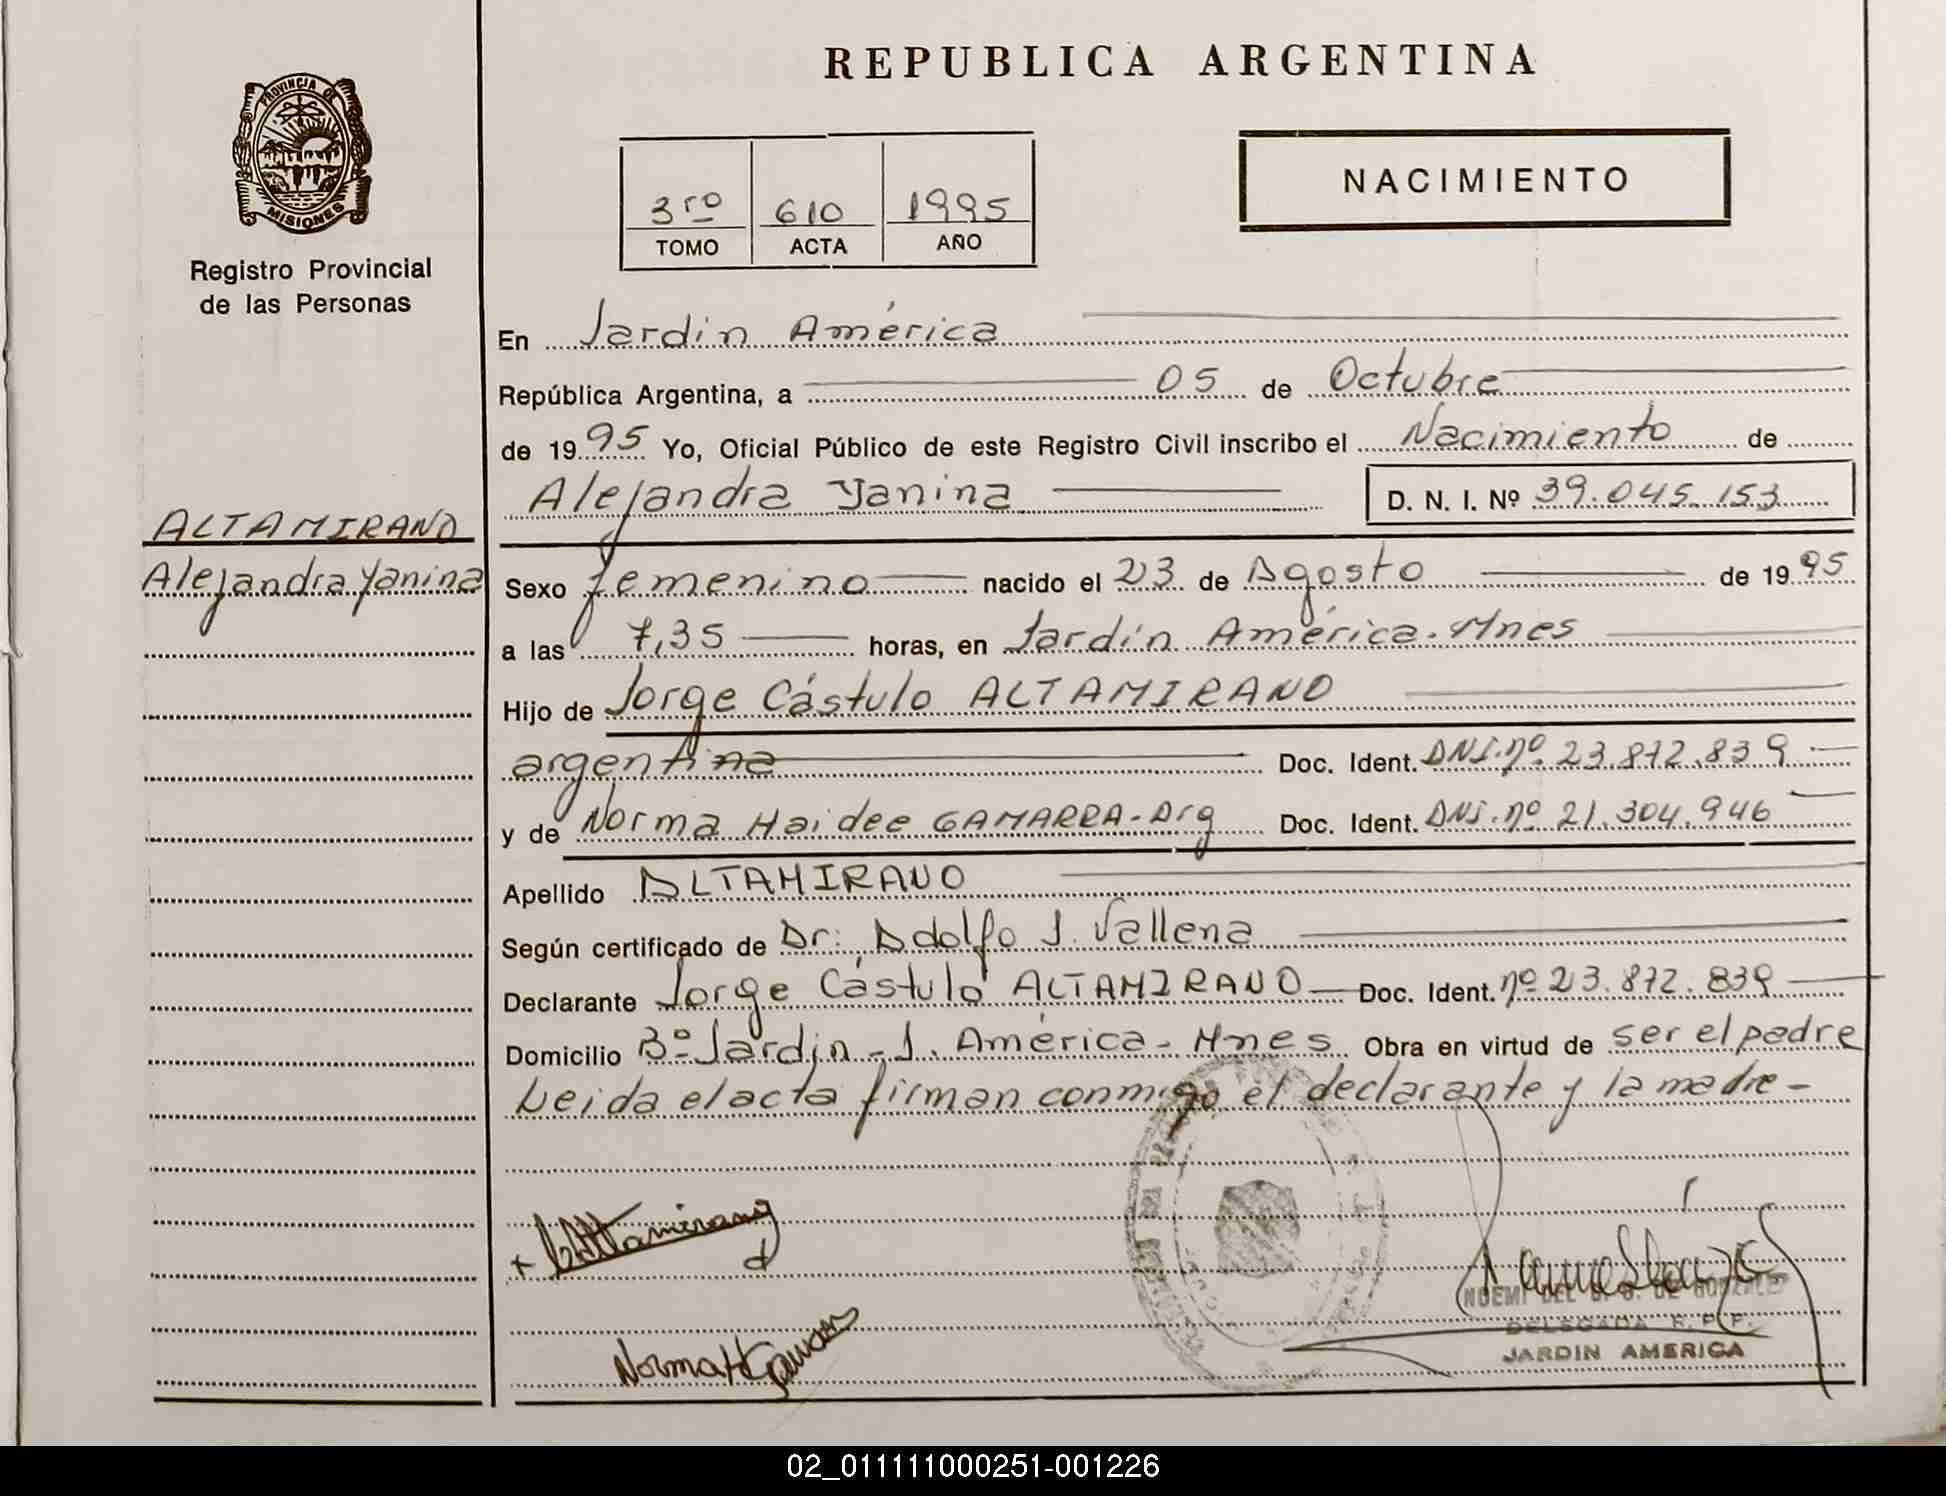 REPUBLICA ARGENTINA
PROVINCIA DE
MISIONES
Registro Provincial
de las Personas
NACIMIENTO
3ro 610 1995
TOMO ACTA AÑO
En Jardín América
República Argentina, a 05 de Octubre
de 1995 Yo, Oficial Público de este Registro Civil inscribo el Nacimiento de
Alejandra Yanina D. N. I. Nº 39.045.153
ALTAMIRANO
Alejandra Yanina
Sexo femenino nacido el 23 de Agosto de 1995
a las 7,35 horas, en Jardín América. Mnes
Hijo de Jorge Cástulo ALTAMIRANO
argentina Doc. Ident. DNI. nº 23.872.839
y de Norma Haidee GAMARRA - Arg Doc. Ident. DNI. nº 21.304.946
Apellido ALTAMIRANO
Según certificado de Dr: Adolfo J. Vallena
Declarante Jorge Cástulo ALTAMIRANO Doc. Ident. nº 23.872.839
Domicilio Bº Jardín - J. América - Mnes Obra en virtud de ser el padre
Leida el acta firman conmigo el declarante y la madre -
Altamirano
NOEMI DEL DE GONZALEZ
DELEGADA R.P.P.
JARDIN AMERICA
Norma H Gamarra
02_011111000251-001226